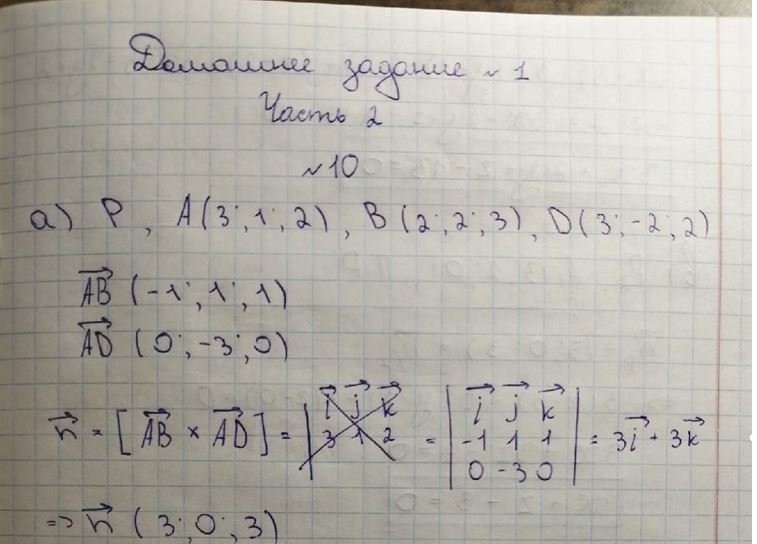 Домашнее задание № 1
Часть 2
№10
а) P, A(3; 1; 2), B(2; 2; 3), D(3; -2; 2)
AB (-1; 1; 1)
AD (0; -3; 0)
n = [AB × AD] = | i j k 3 1 2 = | i j k |
-1 1 1
0 -3 0 | = 3i + 3k
=> n (3; 0; 3)